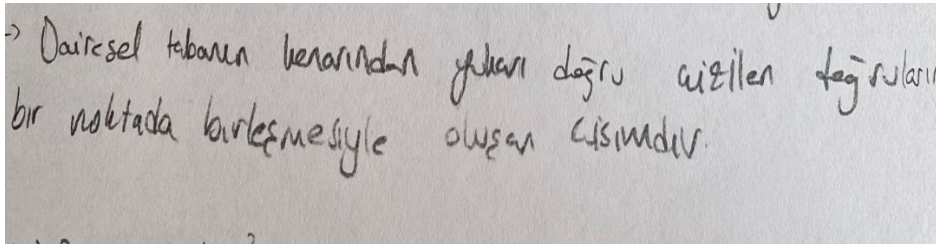 -> Dairesel tabanın kenarından yukarı doğru çizilen doğruların
bir noktada birleşmesiyle oluşan cisimdir.